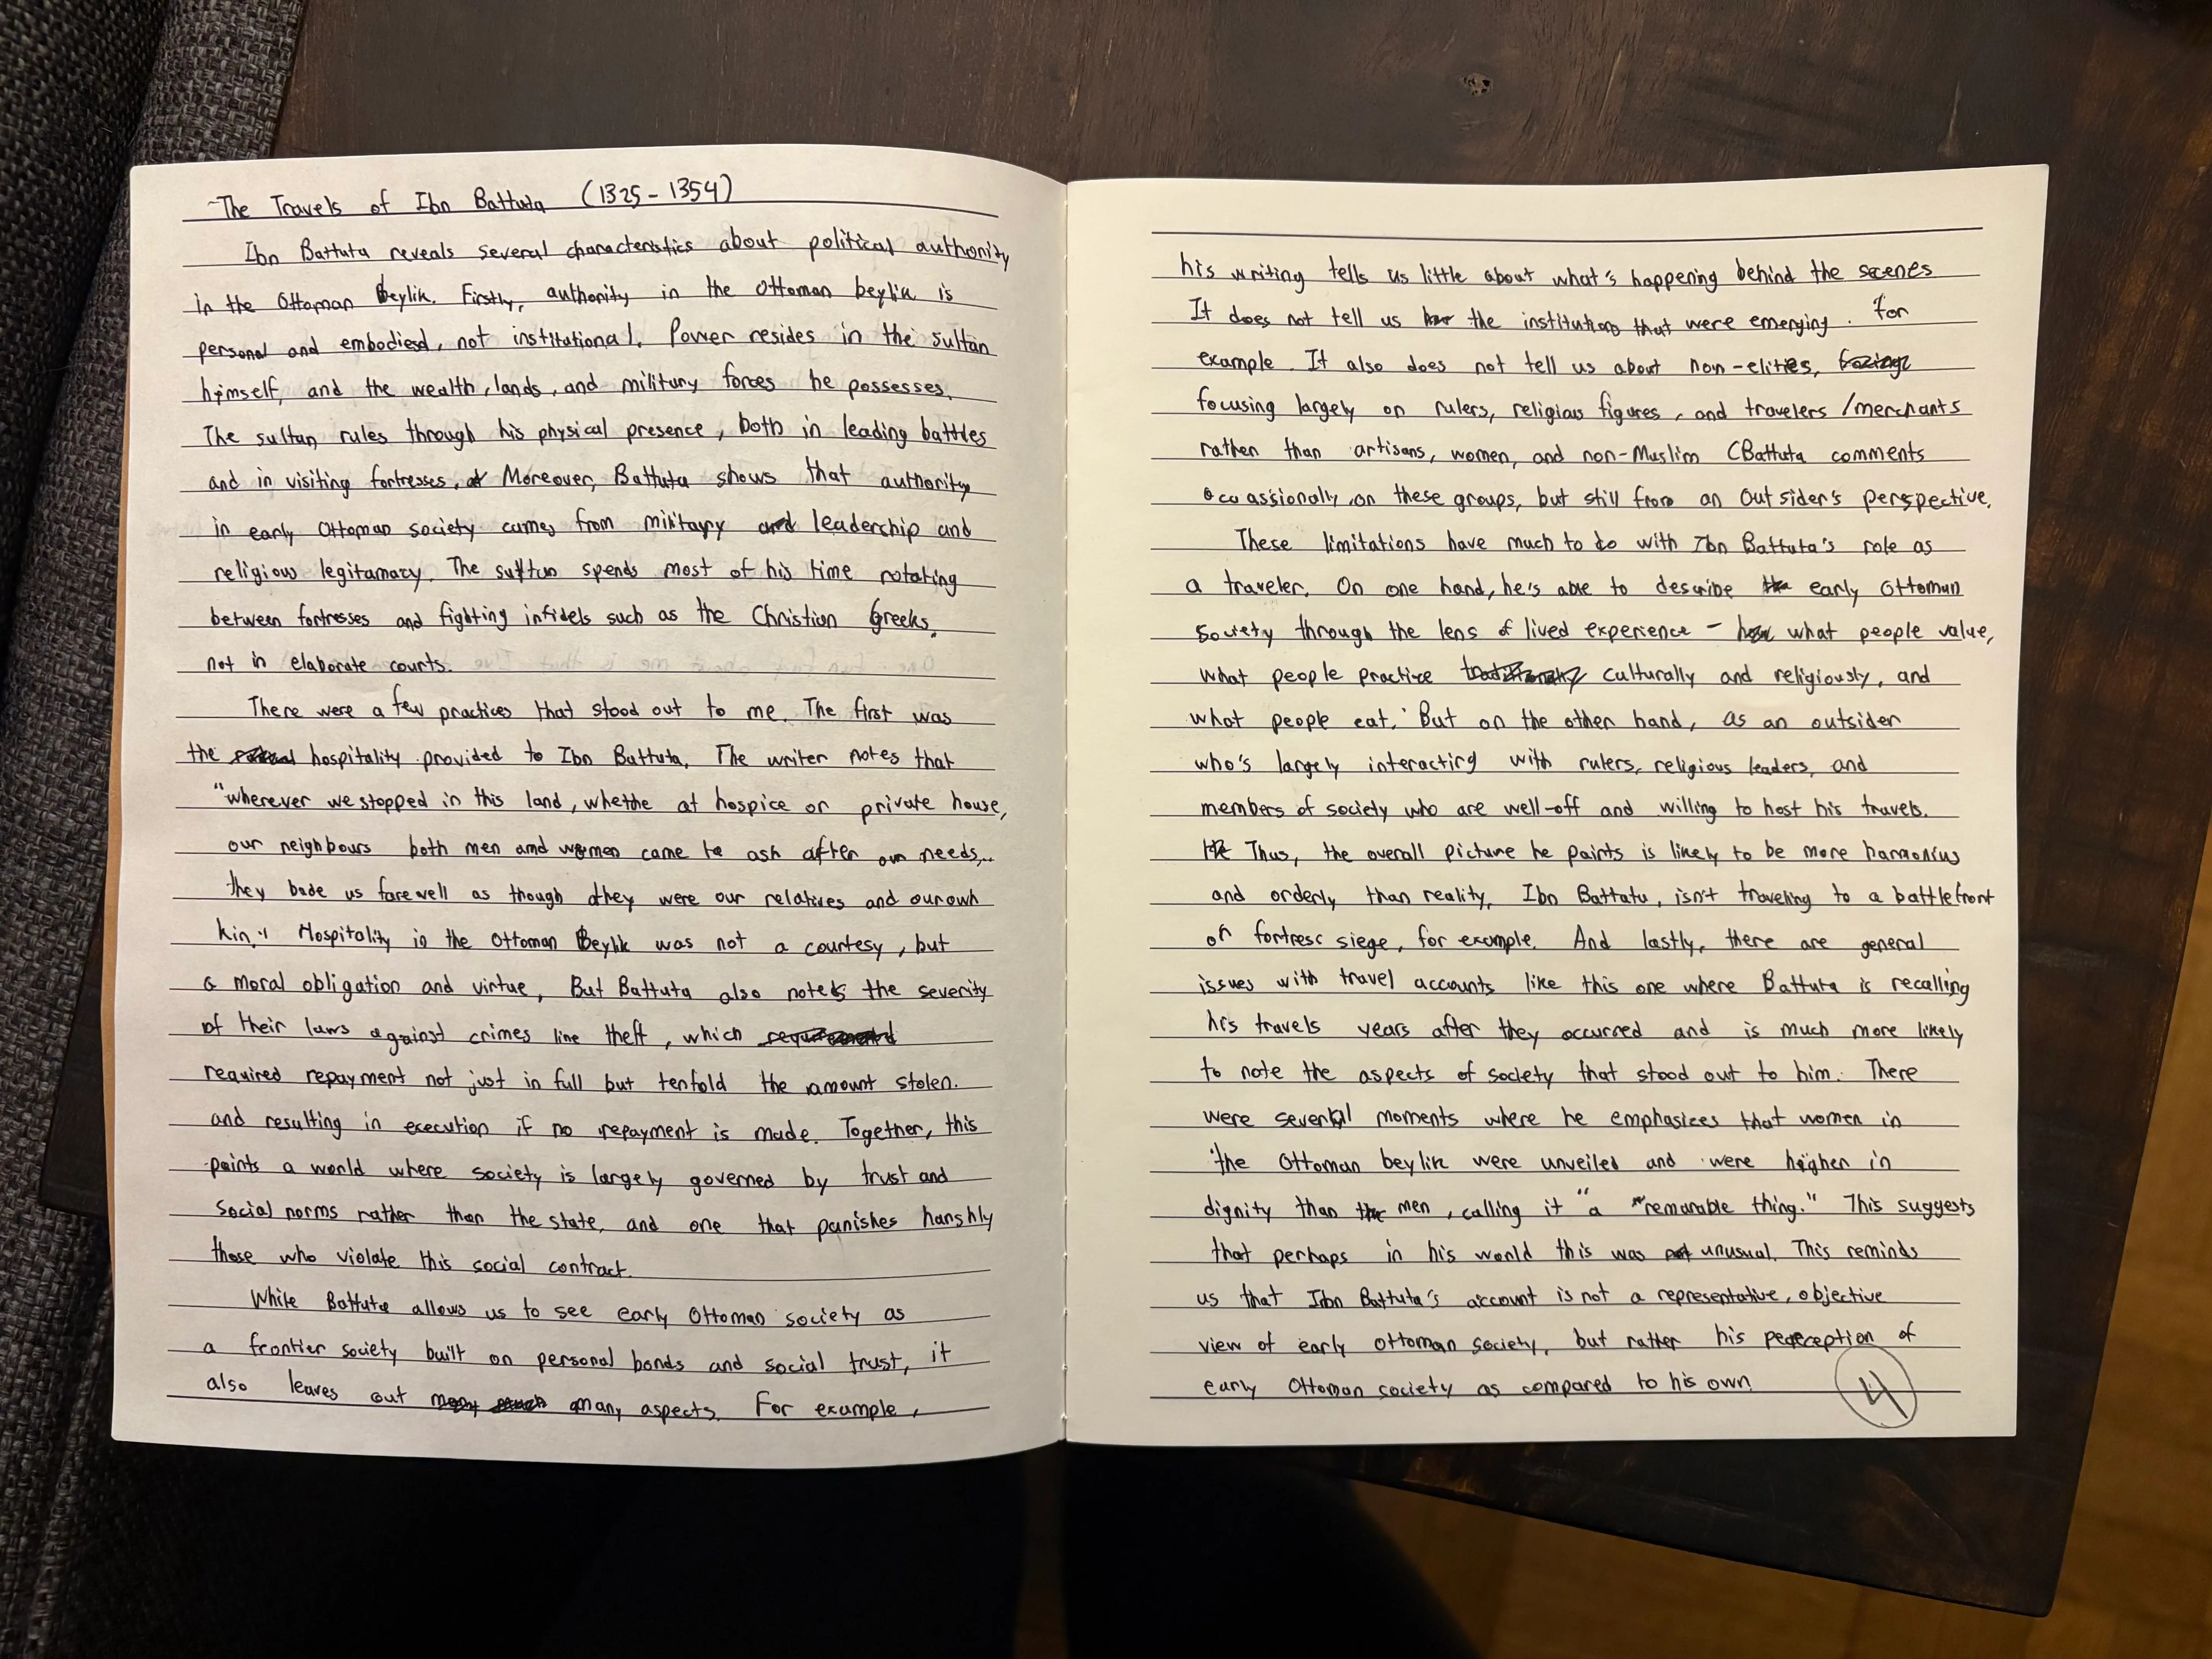 The Travels of Ibn Battuta (1325-1354)
Ibn Battuta reveals several characteristics about political authority
in the Ottoman Beylik. Firstly, authority in the Ottoman beylik is
personal and embodied, not institutional. Power resides in the sultan
himself, and the wealth, lands, and military forces he possesses.
The sultan rules through his physical presence, both in leading battles
and in visiting fortresses. Moreover, Battuta shows that authority
in early Ottoman society comes from military leadership and
religious legitamacy. The sultan spends most of his time rotating
between fortresses and fighting infidels such as the Christian Greeks,
not in elaborate courts.
There were a few practices that stood out to me. The first was
the hospitality provided to Ibn Battuta. The writer notes that
"wherever we stopped in this land, whethe at hospice or private house,
our neighbours both men and women came to ask after our needs...
they bade us farewell as though they were our relatives and our own
kin." Hospitality in the Ottoman Beylik was not a courtesy, but
a moral obligation and virtue. But Battuta also notes the severity
of their laws against crimes like theft, which
required repayment not just in full but tenfold the amount stolen.
and resulting in execution if no repayment is made. Together, this
paints a world where society is largely governed by trust and
social norms rather than the state, and one that punishes harshly
those who violate this social contract.
While Battuta allows us to see early Ottoman society as
a frontier society built on personal bonds and social trust, it
also leaves out many aspects. For example,
his writing tells us little about what's happening behind the scenes
It does not tell us the institutions that were emerging. for
example. It also does not tell us about non-elities,
focusing largely on rulers, religious figures, and travelers/merchants
rather than artisans, women, and non-Muslim (Battuta comments
occassionally on these groups, but still from an outsider's perspective.
These limitations have much to do with Ibn Battuta's role as
a traveler. On one hand, he's able to describe early Ottoman
society through the lens of lived experience - what people value,
what people practice culturally and religiously, and
what people eat. But on the other hand, as an outsider
who's largely interacting with rulers, religious leaders, and
members of society who are well-off and willing to host his travels.
Thus, the overall picture he paints is likely to be more harmonius
and orderly than reality. Ibn Battatu, isn't traveling to a battlefront
or fortress siege, for example. And lastly, there are general
issues with travel accounts like this one where Battuta is recalling
his travels years after they occurred and is much more likely
to note the aspects of society that stood out to him. There
were several moments where he emphasizes that women in
the Ottoman beylik were unveiled and were higher in
dignity than men, calling it "a "remarable thing." This suggests
that perhaps in his world this was unusual. This reminds
us that Ibn Battuta's account is not a representative, objective
view of early Ottoman society, but rather his perception of
early Ottoman society as compared to his own.
4